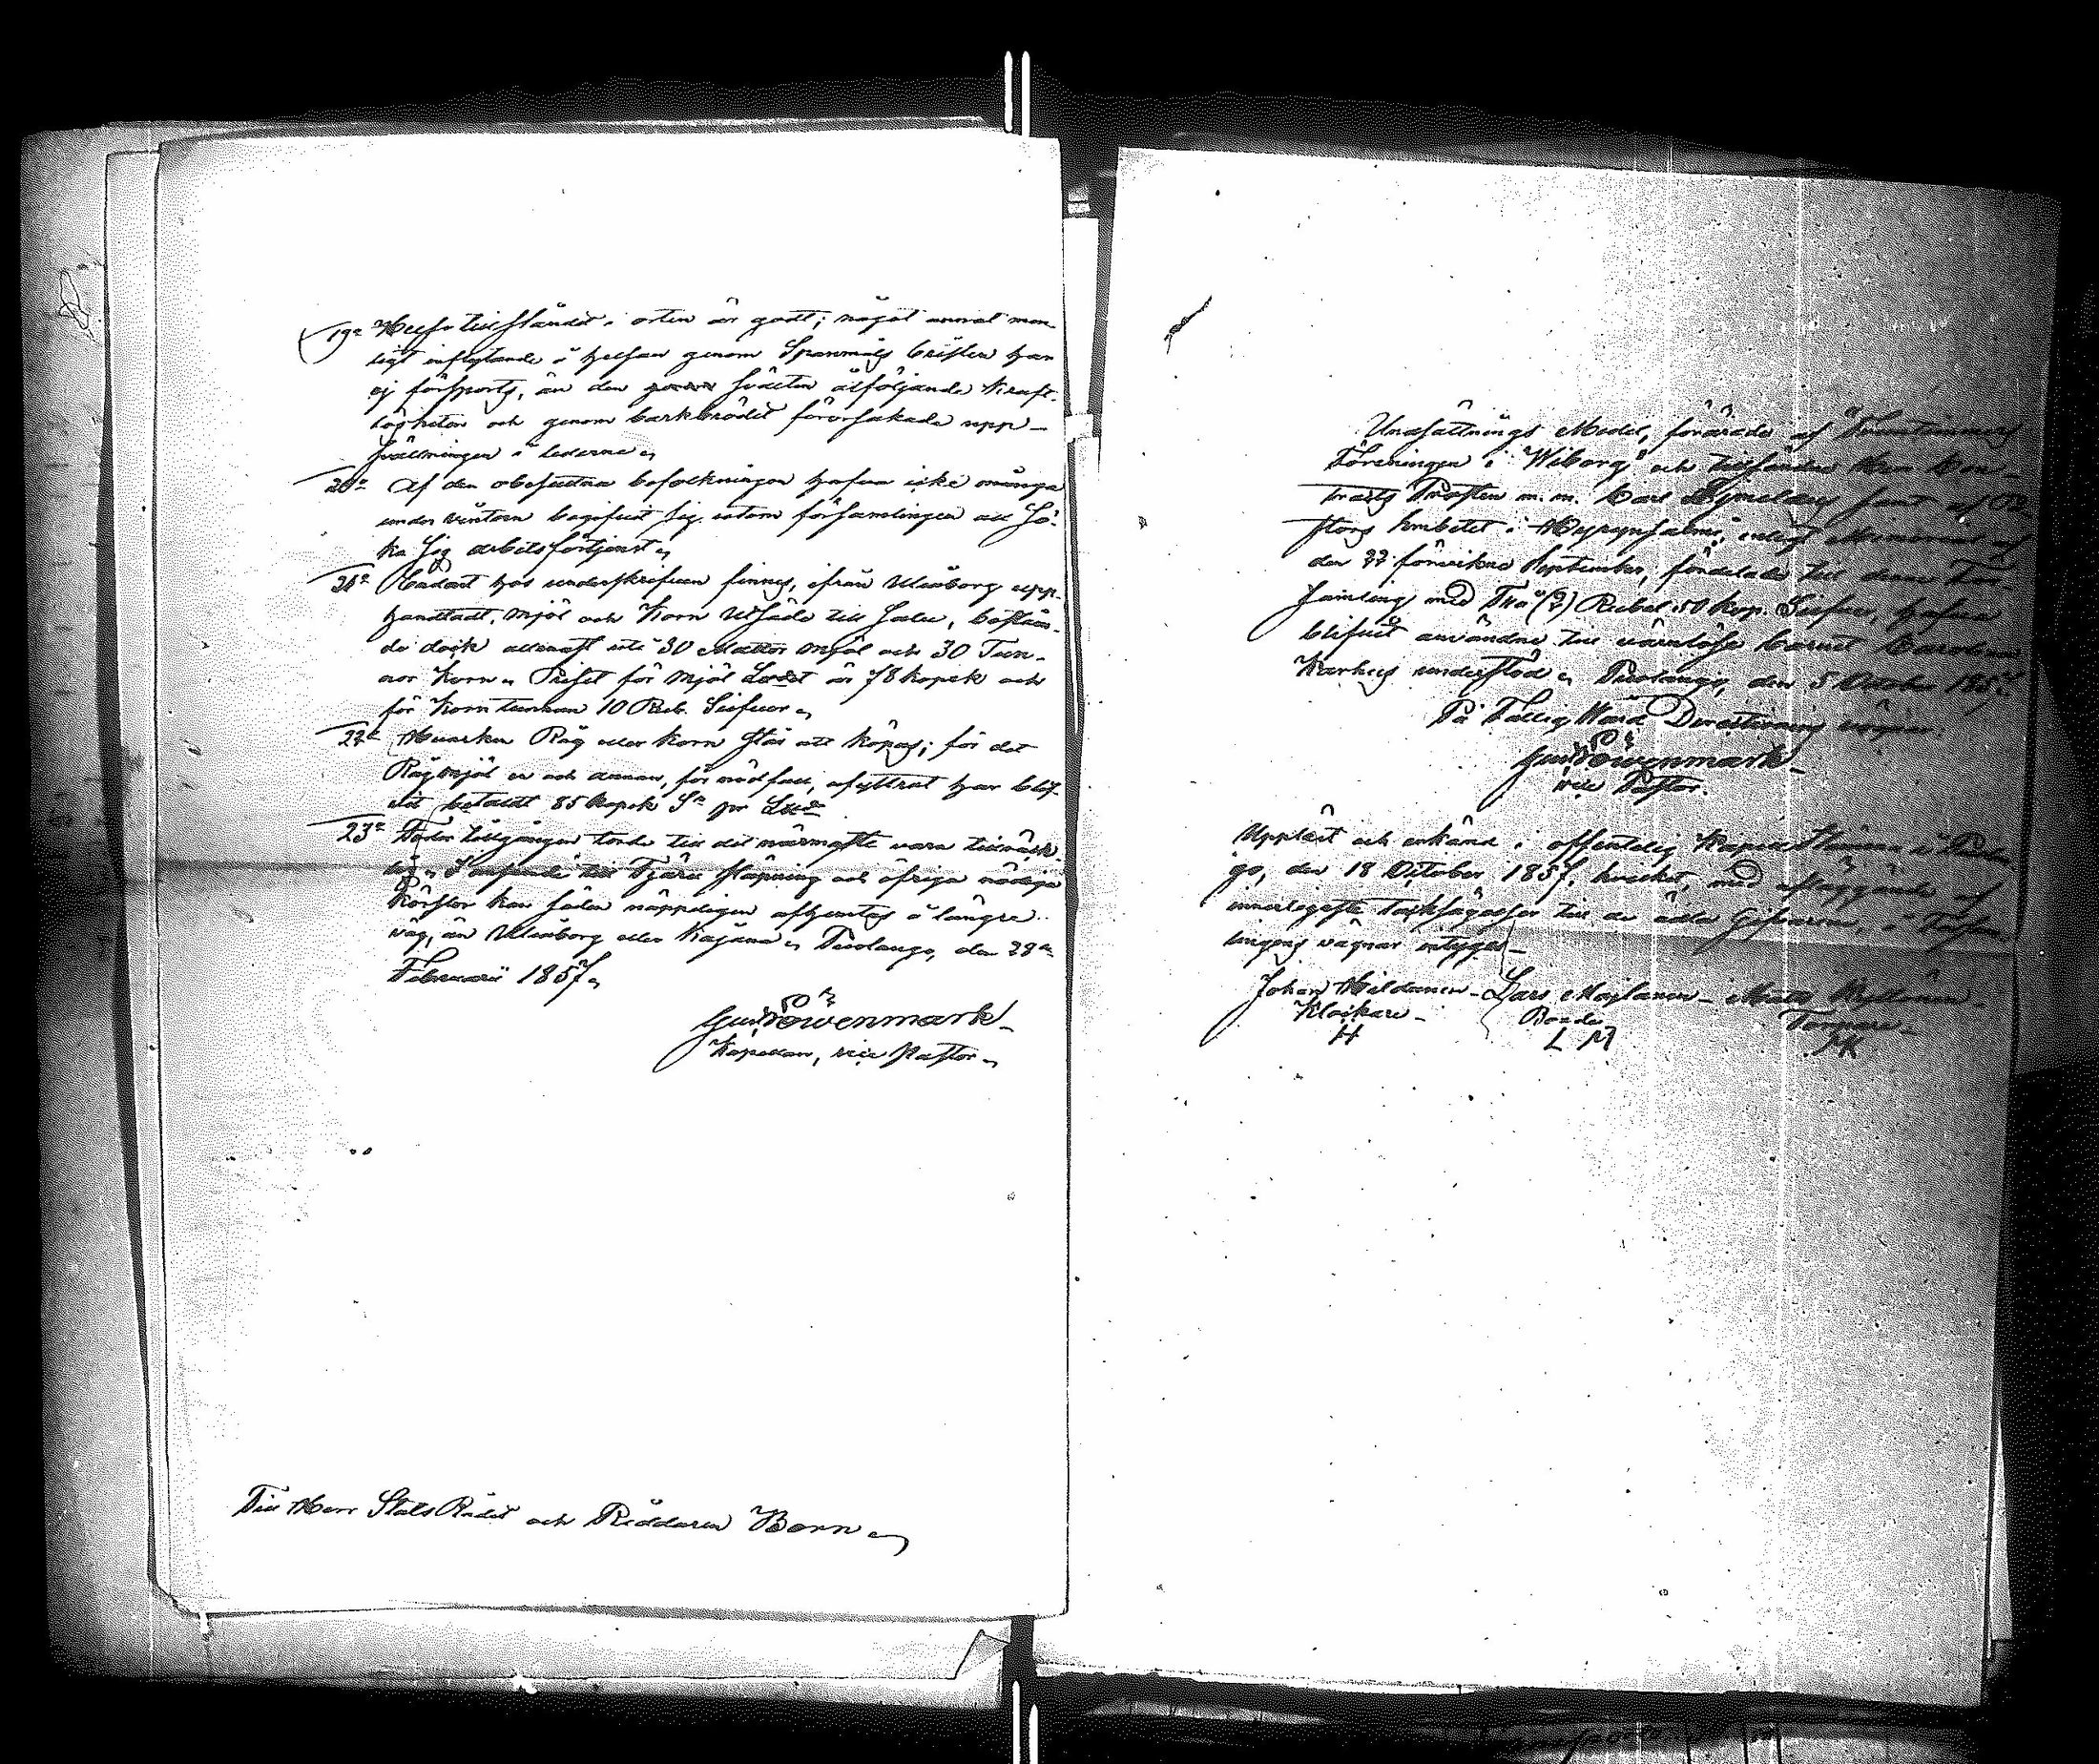 19e Helso tillståndet i orten är godt; något annat men-
ligt inflytande å helsan genom Spanmåls bristen har
ej försports, än den svälten åtföljande kraft-
lösheten och genom barkbrödet förorsakade upp-
svällningen i lederne.
20e Af den obesuttna befolkningen hafva icke många
under vintern begifvit sig utom församlingen att sö-
ka sig arbetsförtjenst.
21e Endast hos underskrifven finnes, ifrån Uleåborg upp-
handladt, mjöl och Korn Utsäde till salu, bestån-
de dock allenast uti 30 Mattor mjöl och 30 Tun-
nor Korn. Priset för mjöl Lodt är 78 kopek och
för Korn tunnan 10 Rub. Silfver.
22e Hvarken Råg eller Korn står att köpas; för det
Rågmjöl en och annan, för nödfall, afyttrat har blif-
vit betaldt 85 kopek Sr pr
23e Foder tillgången torde till det närmaste vara tillräck-
lig. till Tjäru släpning och öfriga nödiga
körslor kan säden näppeligen afhemtas å längre
väg, än Uleåborg eller Kajana. Puolango, den 28de
Februarii 1857.
Gust Löwenmark
Kapellan, vice Pastor.
Till Herr Stats Rådet och Riddaren Born
Undsättnings Medel, förärade af
Föreningen i Wiborg och tillsände Herr Con-
trakts Prosten m. m. Carl samt af Pa-
stors Embetet i Hyrynsalmi, enligt Memorial af
den 22 förvikne September, fördelade till denna För-
samling med Två (2) Rubel 50 kop. Silfver, hafva
blifvit använde till värnlösa barnet Carolina
Karhus understöd. Puolango, den 5 October 1857.
På Fattig Wård Directionens vägnar:
Gust Löwenmark
vice Pastor.
Uppläst och erkänd i offentelig Kapell Stämma i Puolan-
go, den 18 October 1857, hvilket, med afläggande af
innerligaste tacksägelser till de ädla Gifvarne, å Försam-
lingens vägnar intygas
Johan Hildanen Lars Moilanen Matts Kyllönen
Klockare Bonde Torpare
H L M MK